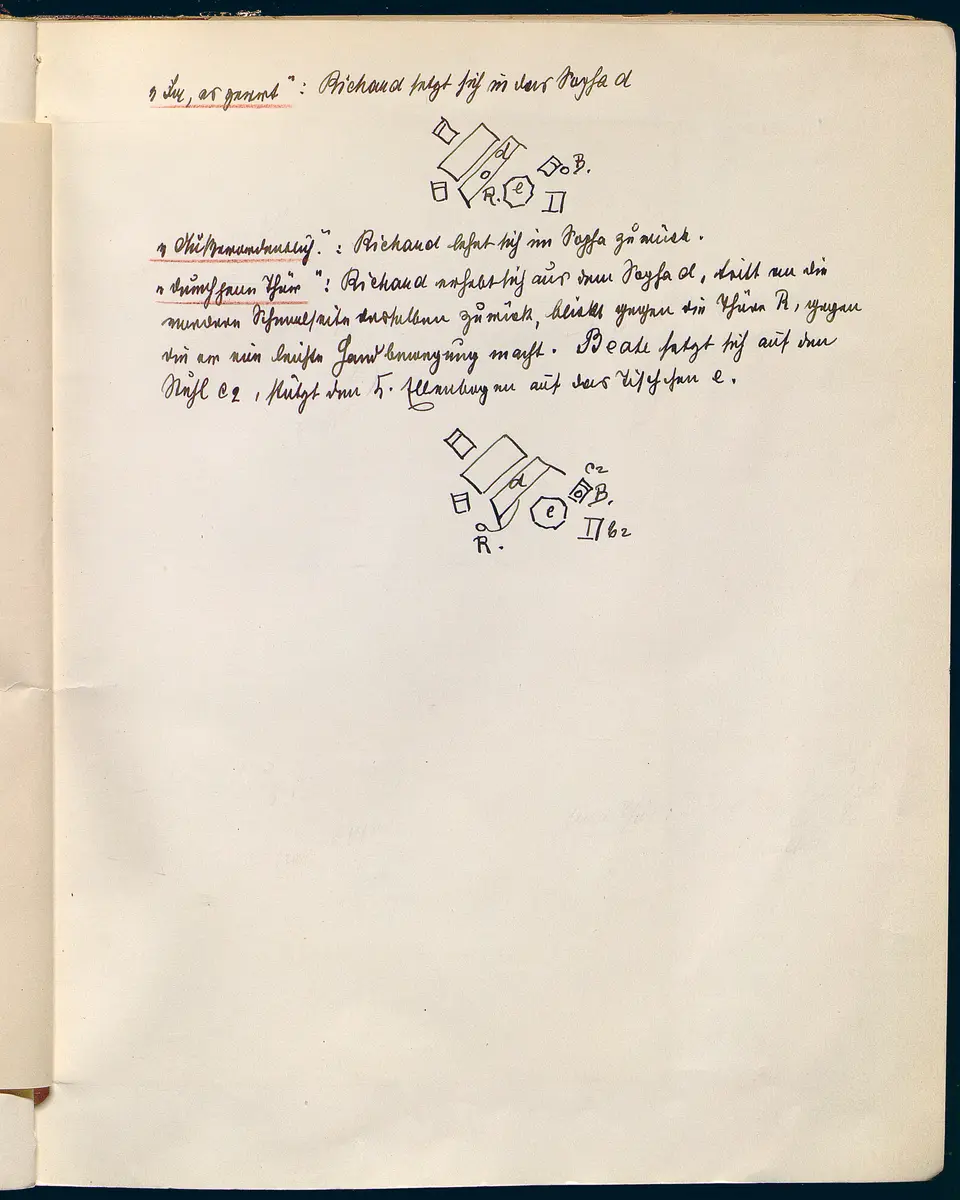 "Ja, es": Richard setzt sich in das Sopha d
d
B.
R. e
"Außerordentlich.": Richard lehnt sich im Sopha zurück.
"durch jene Thür": Richard erhebt sich aus dem Sopha d, tritt an die
vordere Schmalseite desselben zurück, blickt gegen die Thüre R, gegen
die er eine leichte Handbewegung macht. Beate setzt sich auf den
Stuhl c2, stützt den Ellenbogen auf das Tischchen e.
c2
d
B.
e
b2
R.